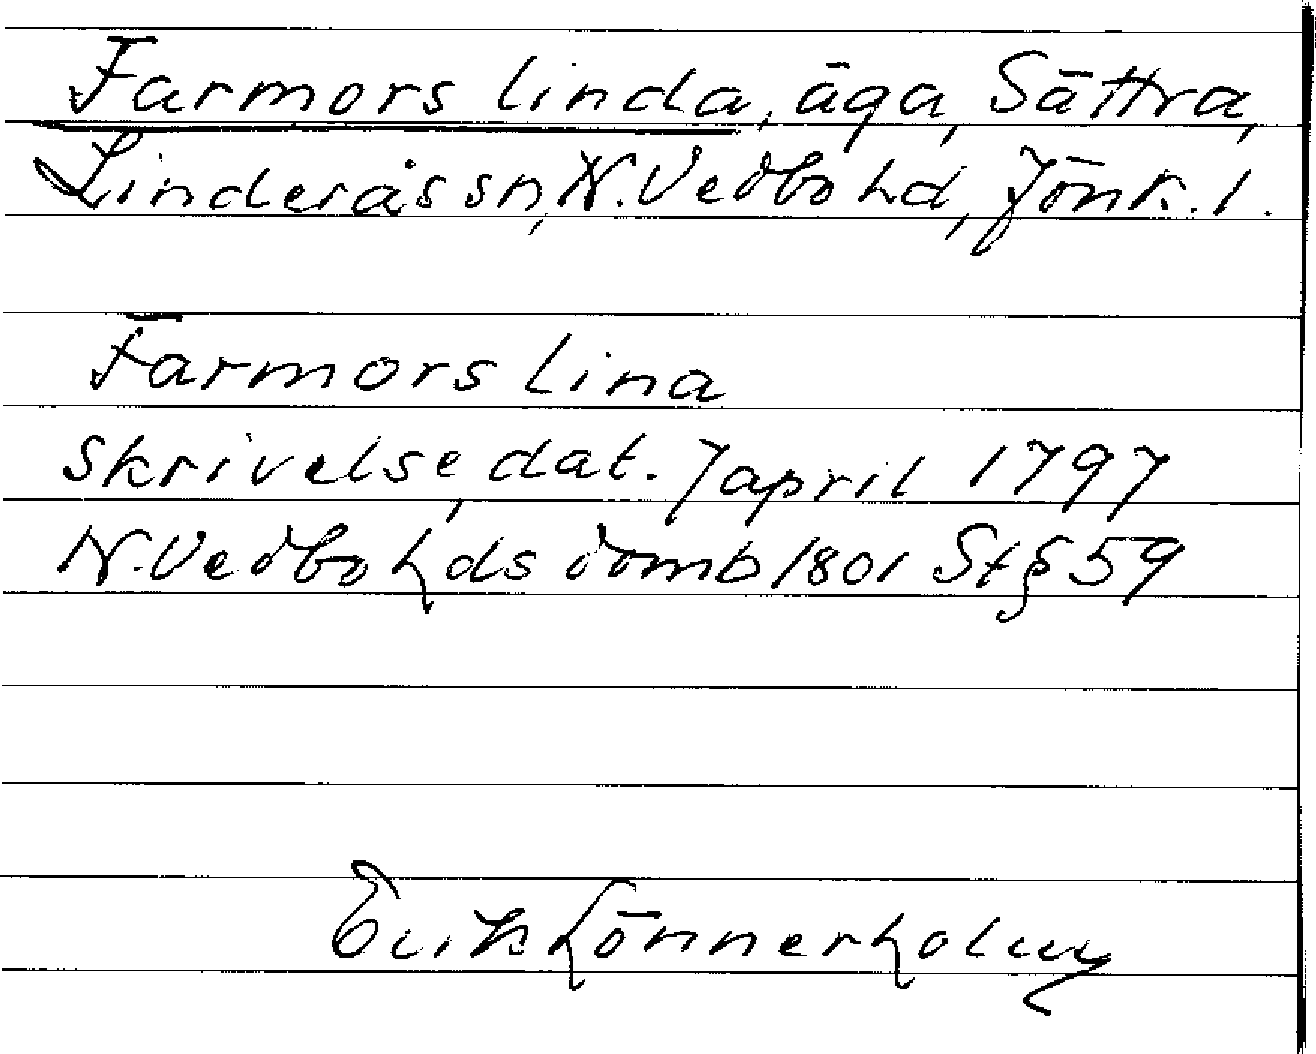 Farmors linda, äga, Sättra,
Linderås sn, N. Vedbo hd, Jönk. l.
Farmors Lina
skrivelse, dat. 7 april 1797
N. Vedbo hds domb 1801 St § 59
Erik Lönnerholm